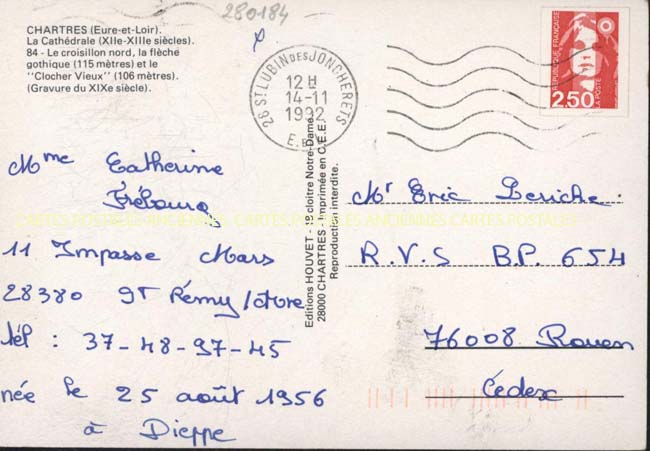 280184
CHARTRES (Eure-et-Loir).
La Cathédrale (XIIe-XIIIe siècles).
84 - Le croisillon nord, la flèche
gothique (115 mètres) et le
"Clocher Vieux" (106 mètres).
(Gravure du XIXe siècle).
28 ST LUBIN DES JONCHERETS
12 H
14-11
1992
REPUBLIQUE FRANÇAISE
2,50
LA POSTE
Mme Catherine
Frébourg
11 Impasse Mars
28380 St Rémy/Avre
tél : 37-48-97-45
née le 25 août 1956
à Dieppe
Editions HOUVET - 18 cloître Notre-Dame
28000 CHARTRES - Imprimée en C.E.E.
Reproduction interdite.
Mr Eric Periche
R.V.S B.P. 654
76008 Rouen
Cédex
CARTES POSTALES ANCIENNES CARTES POSTALES ANCIENNES CARTES POSTALES